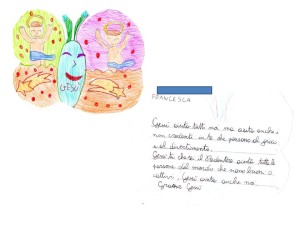 GESÙ
FRANCESCA
Gesù aiuta tutti ma ma aiuta anche i
non credenti in te che pensano di
e al divertimento.
Gesù tu che sei il Redentore aiuta tutte le
persone del mondo che sono buoni o
cattivi, Gesù aiuta anche noi.
Grazie Gesù